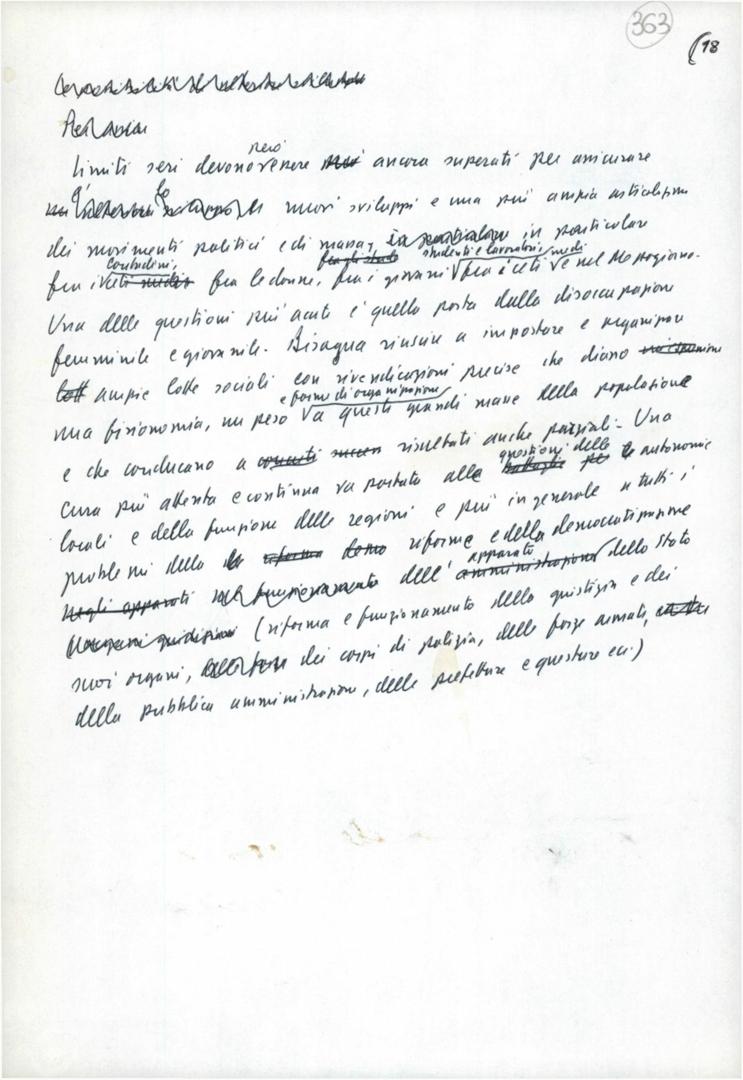 363
(18
però
Limiti seri devono essere ancora superati per assicurare
nuovi sviluppi e una più ampia articolazione
dei movimenti politici e di massa, in particolare in particolare
contadini, fra gli stud studenti e lavoratori, medi
fra i ceti fra le donne, fra i giovani fra i ceti e nel Mezzogiorno.
Una delle questioni più acute è quella posta dalla disoccupazione
femminile e giovanile. Bisogna riuscire a impostare e organizzare
lott ampie lotte sociali con rivendicazioni precise che diano
e forme di organizzazione
una fisionomia, un peso a queste grandi masse della popolazione
e che conducano a risultati anche parziali. Una
questioni delle
cura più attenta e continua va portata alle battaglie per le autonomie
locali e della funzione delle regioni e più in generale a tutti i
problemi della riforma riforme e della democratizzazione
apparato
negli apparati funzionamento dell' amministrazione dello Stato
(riforma e funzionamento della giustizia e dei
suoi organi, dei corpi di polizia, delle forze armate,
della pubblica amministrazione, delle prefetture e questure ecc.)